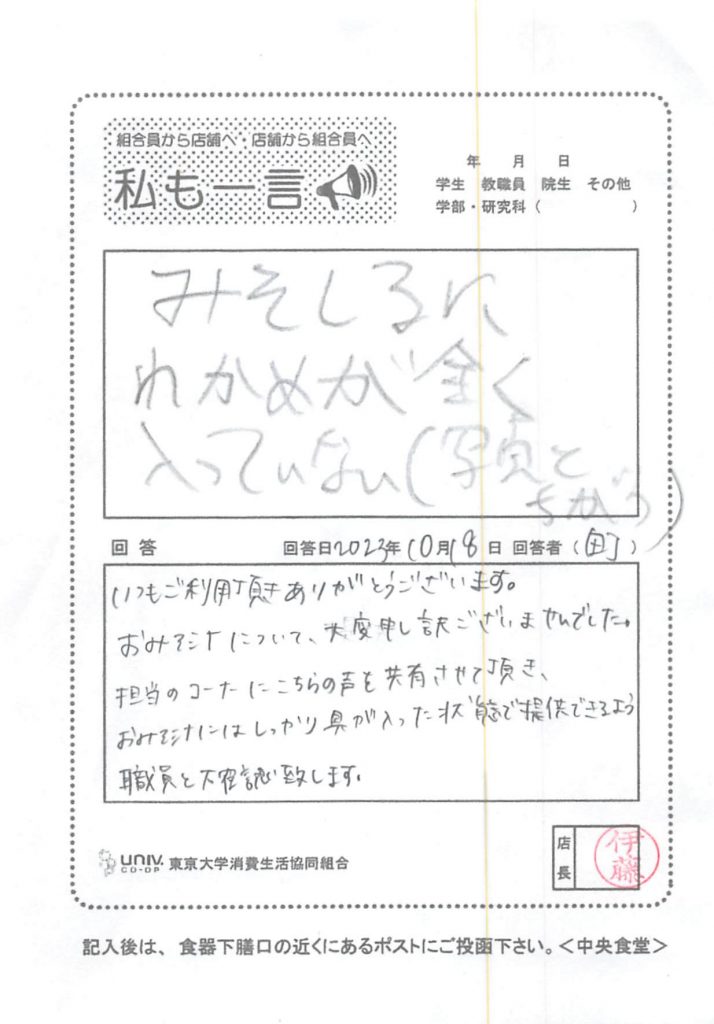 組合員から店舗へ・店舗から組合員へ
私も一言
年 月 日
学生 教職員 院生 その他
学部・研究科( )
みそしるに
わかめが全く
入っていない(写真と
ちがう)
回答 回答日2023年10月18日 回答者( )
いつもご利用頂きありがとうございます。
おみそ汁について、大変申し訳ございませんでした。
担当のコーナーにこちらの声を共有させて頂き、
おみそ汁にはしっかり具が入った状態で提供できるよう
職員と再確認致します。
univ. CO-OP 東京大学消費生活協同組合
店長 伊藤
記入後は、食器下膳口の近くにあるポストにご投函下さい。<中央食堂>